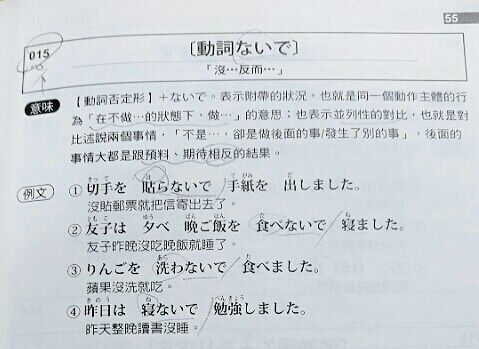 55
015
〔動詞ないで〕
「沒…反而…」
意味 【動詞否定形】＋ないで。表示附帶的狀況，也就是同一個動作主體的行
為「在不做…的狀態下，做…」的意思；也表示並列性的對比，也就是對
比述說兩個事情，「不是…，卻是做後面的事/發生了別的事」，後面的
事情大都是跟預料、期待相反的結果。
例文 ① 切手を 貼らないで 手紙を 出しました。
沒貼郵票就把信寄出去了。
② 友子は 夕べ 晩ご飯を 食べないで 寝ました。
友子昨晚沒吃晚飯就睡了。
③ りんごを 洗わないで 食べました。
蘋果沒洗就吃。
④ 昨日は 寝ないで 勉強しました。
昨天整晚讀書沒睡。